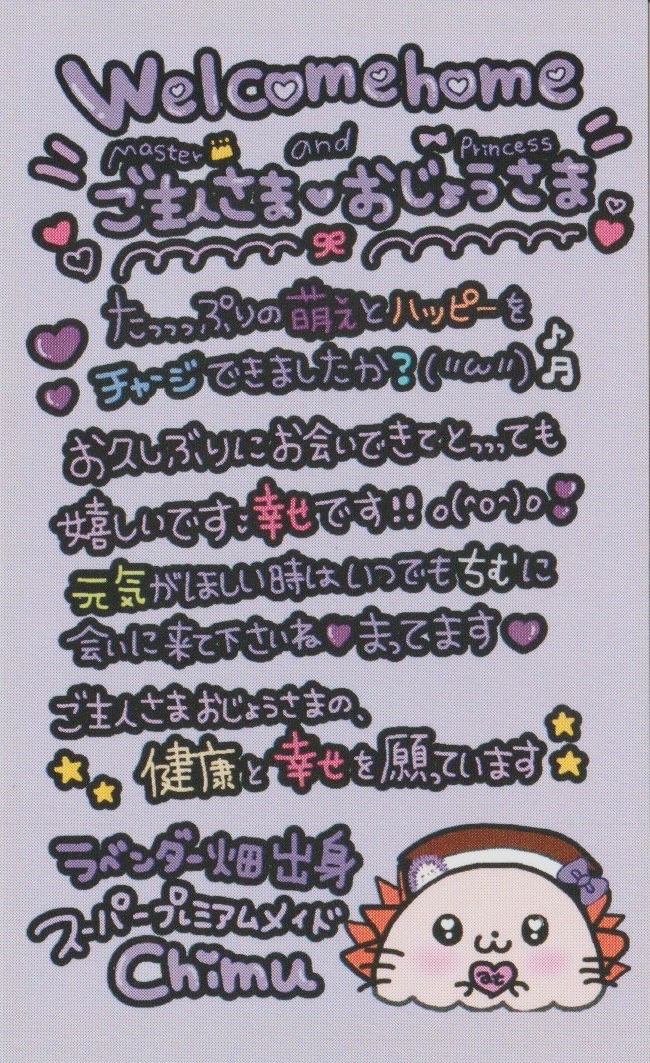 Welcomehome
Master and Princess
ご主人さま♥おじょうさま
たっっっぷりの萌えとハッピーを
チャージできましたか?("ω")♪
お久しぶりにお会いできてとっっっても
嬉しいです。幸せです!! o(^o^)o
元気がほしい時は、いつでもちむに
会いに来て下さいね♥まってます♥
ご主人さまおじょうさまの、
健康と幸せを願っています
ラベンダー畑出身
スーパープレミアムメイド
Chimu